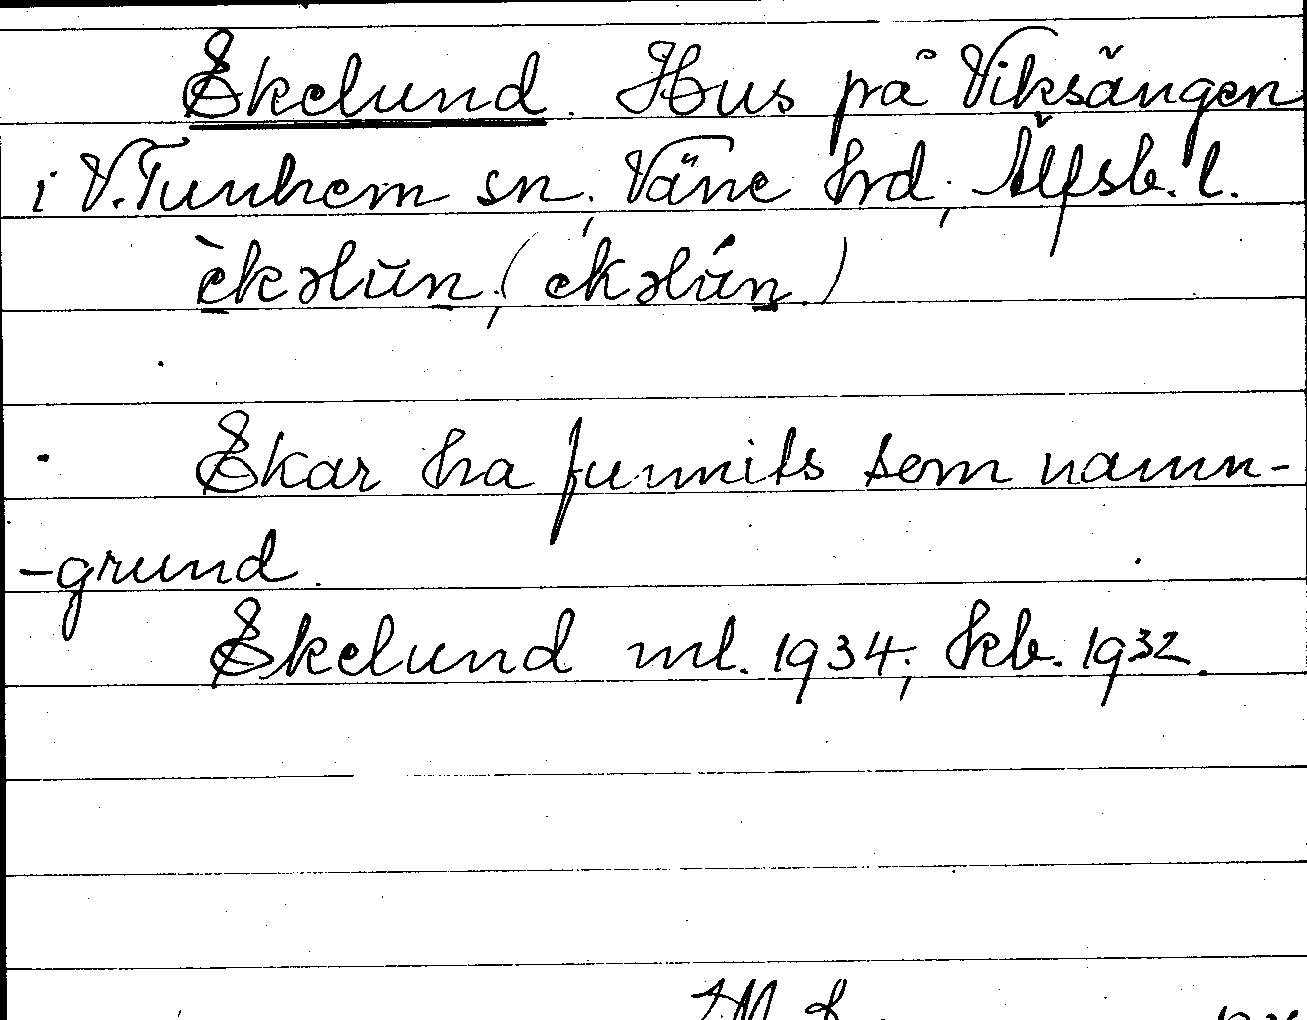 Ekelund. Hus på Viksängen
i V. Tunhem sn, Väne hrd, Älfsb. l.
èkəlŭn, (ekəlún.)
Ekar ha funnits som namn-
-grund.
Ekelund ml. 1934; kb. 1932.